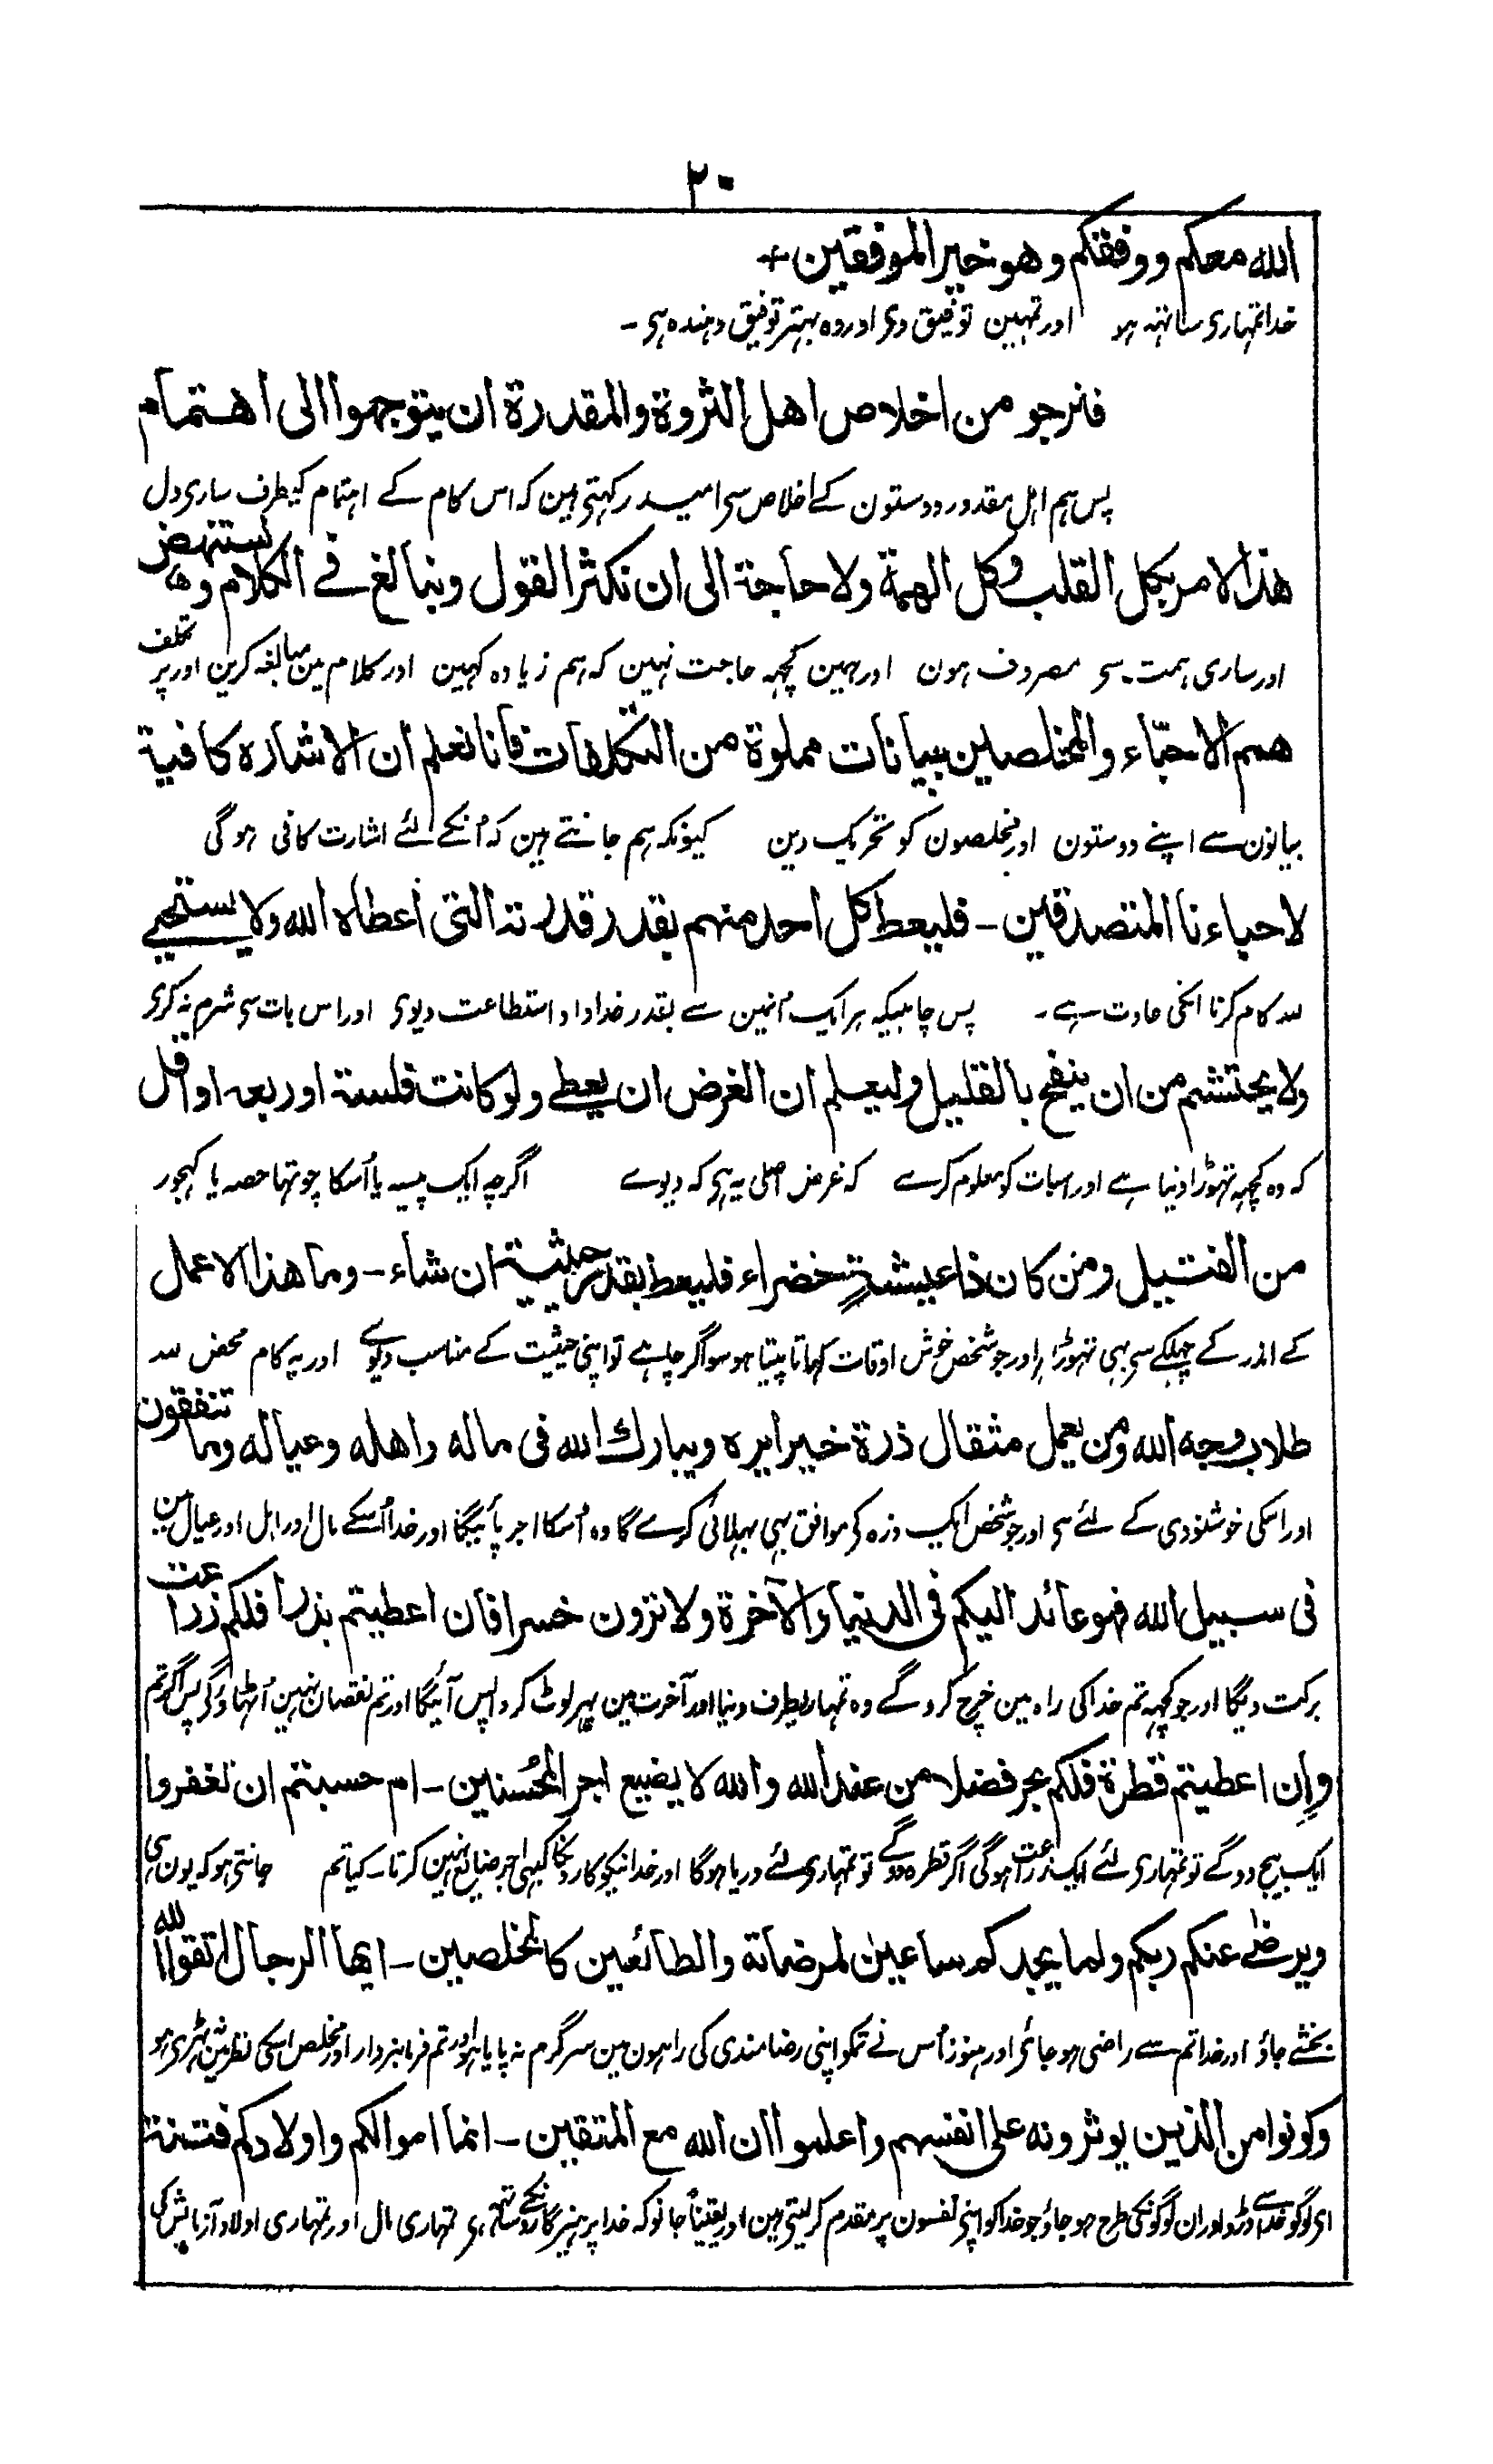 ۲۰
الله معكم ووفقكم وهو خير الموفقين+
خدا تمہاری ساتہہ ہو اور تمہین توفیق دی اور وہ بہتر توفیق دہندہ ہی -
فنرجو من اخلاص اهل الثروة والمقدرة ان يتوجهوا الى اهتمام
پس ہم اہل مقدور دوستون کے اخلاص سی امید رکہتی ہین کہ اس کام کے اہتمام کیطرف ساری دل
هذا الامر بكل القلب وكل الهمة ولا حاجة الى ان نكثر القول ونبالغ فے الكلام و نستنهض
اور ساری ہمت سی مصروف ہون اور ہمین کچہہ حاجت نہین کہ ہم زیادہ کہین اور کلام مین مبالغہ کرین اور پر تکلف
همم الاحبّاء والمخلصين ببيانات مملوة من التكلفات فانا نعلم ان الاشاره كافية
بیانون سے اپنے دوستون اور مخلصون کو تحریک دین کیونکہ ہم جانتے ہین کہ اُنکے لئے اشارت کافی ہوگی
لاحباءنا المتصدقين - فليعط كل احد منهم بقدر قدرته التى اعطاه الله ولا يستحيے
للہ کام کرنا انکی عادت ہے - پس چاہیکہ ہر ایک اُنمین سے بقدر خداداد استطاعت دیوی اور اس بات سی شرم نہ کری
ولا يحتشم من ان ينفح بالقليل وليعلم ان الغرض ان يعطے ولو كانت فلسة او ربعه او اقل
کہ وہ کچہہ تہوڑا دیتا ہے اور اسبات کو معلوم کرے کہ غرض اصلی یہ ہی کہ دیوے اگرچہ ایک پیسہ یا اُسکا چوتہا حصہ یا کہجور
من الفتيل ومن كان ذا عيشةٍ خضراء فليعط بقدر حيثيته ان شاء - وما هذا الا عمل
کے اندر کے چہلکے سی بہی تہوڑا اور جو شخص خوش اوقات کہاتا پیتا ہو سو اگر چاہے تو اپنی حیثیت کے مناسب دیوے اور یہ کام محض للہ
طلاب وجه الله ومن يعمل مثقال ذرة خيرا يره ويبارك الله فى ماله واهله وعياله وما تنفقون
اور اسکی خوشنودی کے لئے ہی اور جو شخص ایک ذرہ کی موافق بہی بہلائی کرے گا وہ اُسکا اجر پائیگا اور خدا اُسکے مال اور اہل اور عیال مین
فى سبيل الله فهو عائد اليكم فى الدنيا والآخرة ولا تزون خسرا فان اعطيتم بذرا فلكم زراعت
برکت دیگا اور جو کچہہ تم خدا کی راہ مین خرچ کروگے وہ تمہاریطرف دنیا اور آخرت مین پہر لوٹ کر واپس آئیگا اور تم نقصان نہین اُٹہاؤگی پس اگر تم
وإن اعطيتم قطرة فلكم بحر فضلا من عند الله والله لا يضيع اجر المحُسنين - ام حسبتم ان تغفروا
ایک بیج دوگے تو تمہاری لئے ایک زراعت ہوگی اگر قطرہ دوگے تو تمہاری لئے دریا ہوگا اور خدا نیکوکارونکا کبہی اجر ضائع نہین کرتا - کیا تم جانتی ہو کہ یون ہی
ويرضے عنكم ربكم ولما يجدكم ساعين لمرضاته والطائعين كالمخلصين - ايها الرجال اتقوا الله
بخشے جاؤ اور خدا تم سے راضی ہو جائی اور ہنوز اُس نے تمکو اپنی رضامندی کی راہون مین سرگرم نہ پایا ہو اور تم فرمانبردار اور مخلص اسکی نظر مین نہ ٹہری ہو
وكونوا من الذين يوثرونه على انفسهم واعلموا ان الله مع المتقين - انما اموالكم واولادكم فتنة
ای لوگو خدا سے ڈرو اور ان لوگونکی طرح ہو جاؤ جو خدا کو اپنی نفسون پر مقدم کر لیتی ہین اور یقیناً جانو کہ خدا پرہیزگارونکے ساتہہ ہی تمہاری مال اور تمہاری اولاد آزمائش کی